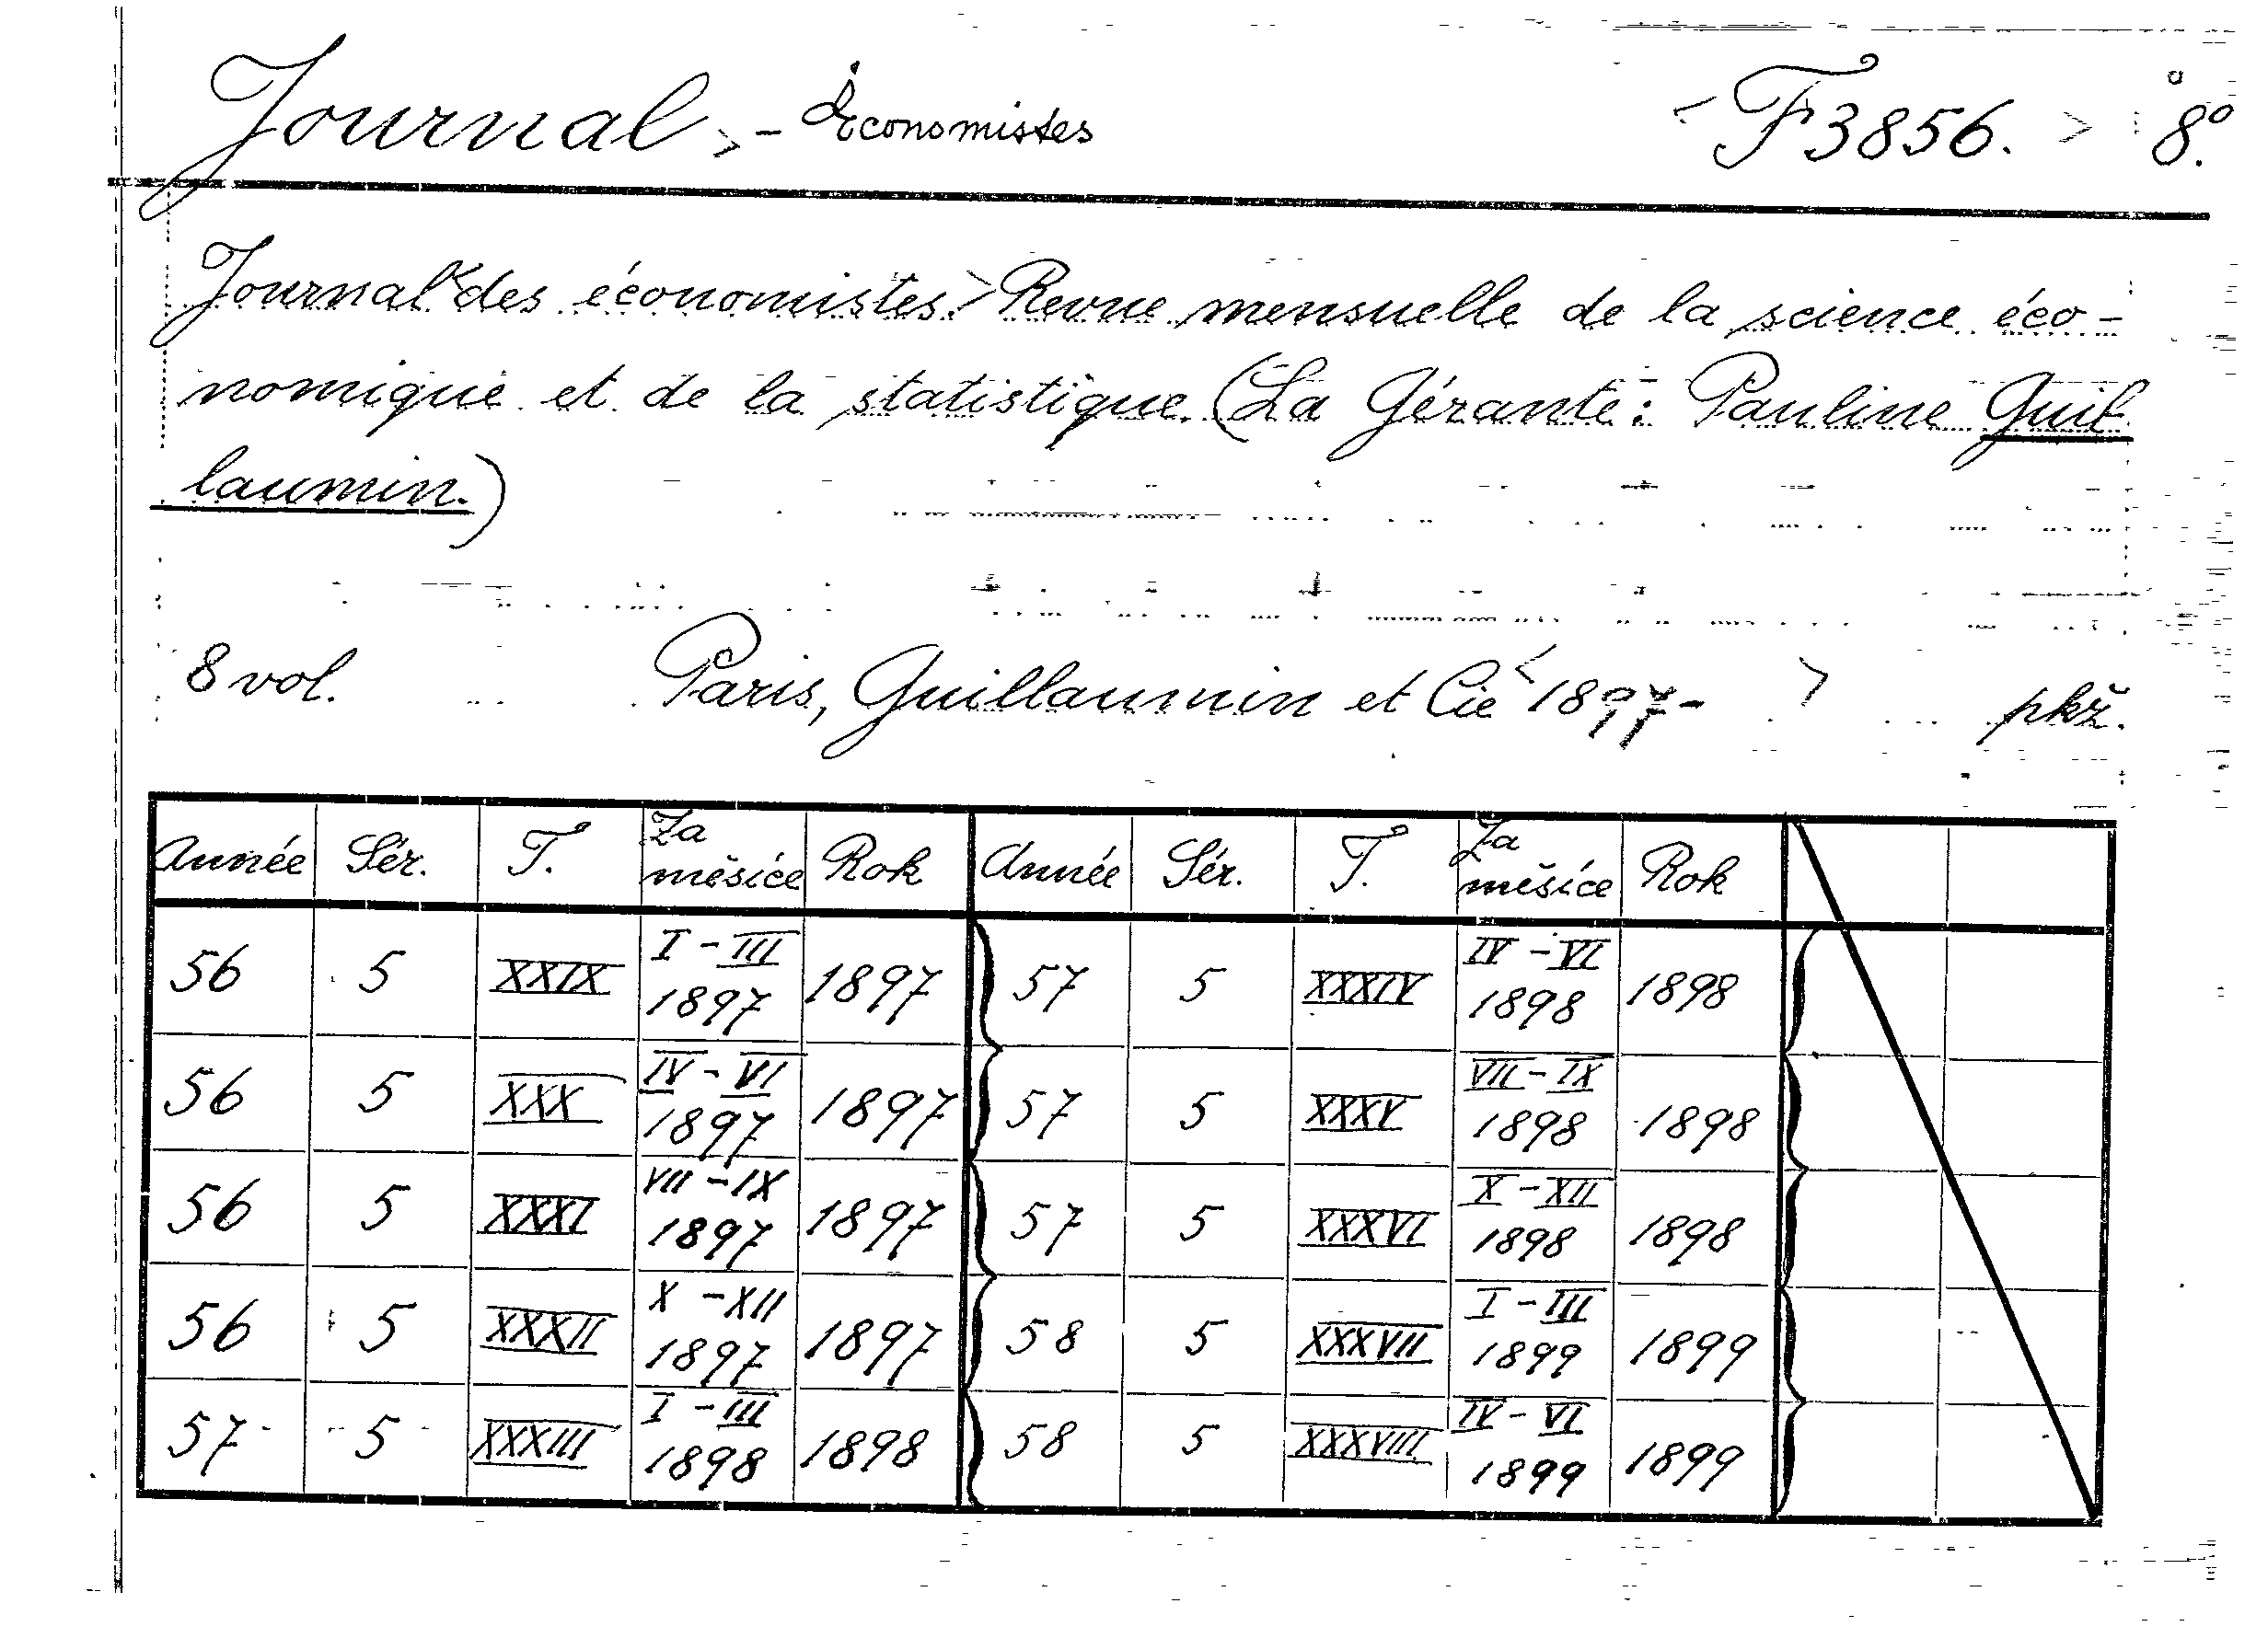 Journal, - économistes F 3856. 8°.
Journal des économistes. Revue mensuelle de la science éco-
nomique et de la statistique. (La Gérante: Pauline Guil-
laumin.)
8 vol. Paris, Guillaumin et Cie 1897- pkž.
Année Sér. T. Za měsíce Rok Année Sér. T. Za měsíce Rok
56 5 XXIX I-III 1897 1897 57 5 XXXIV IV-VI 1898 1898
56 5 XXX IV-VI 1897 1897 57 5 XXXV VII-IX 1898 1898
56 5 XXXI VII-IX 1897 1897 57 5 XXXVI X-XII 1898 1898
56 5 XXXII X-XII 1897 1897 58 5 XXXVII I-III 1899 1899
57 5 XXXIII I-III 1898 1898 58 5 XXXVIII IV-VI 1899 1899